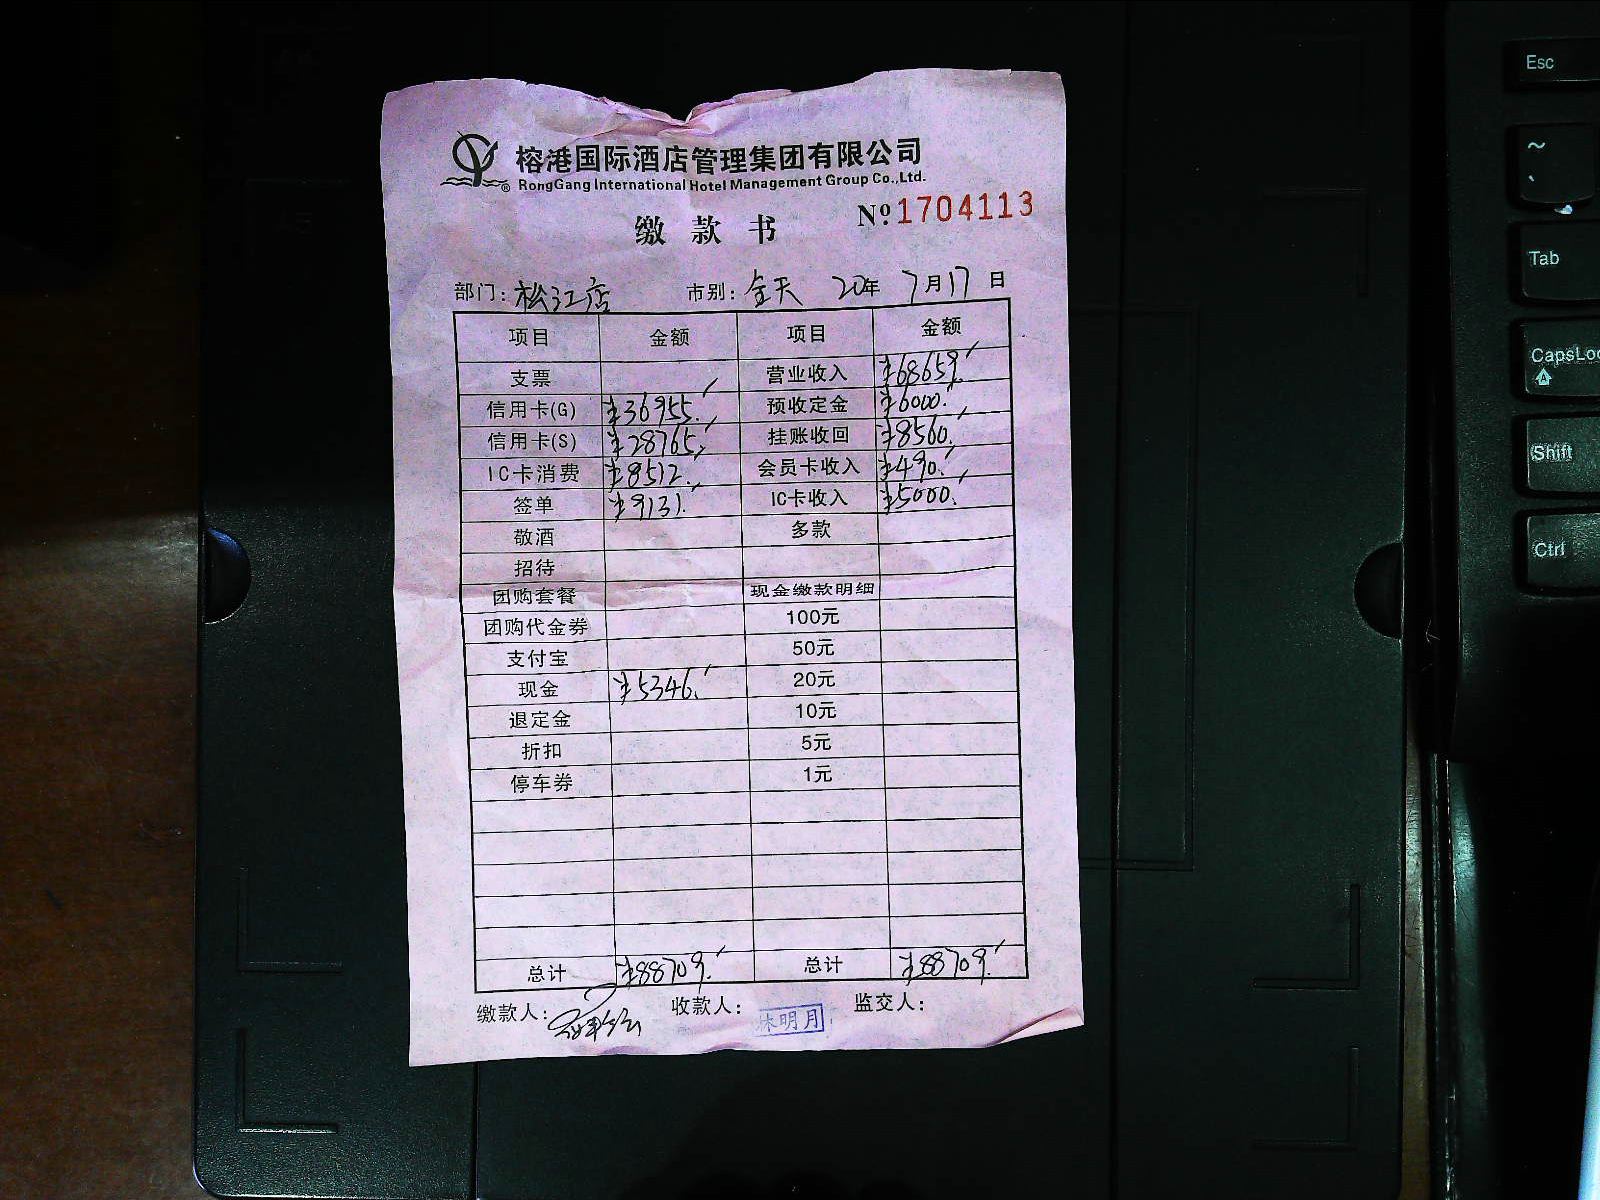 榕港国际酒店管理集团有限公司
RongGang International Hotel Management Group Co.,Ltd.
缴款书 Nº1704113
部门：松江店 市别：全天 20年 7月17日
项目 金额 项目 金额
支票 营业收入 ¥68659.
信用卡(G) ¥36955. 预收定金 ¥6000.
信用卡(S) ¥28765. 挂账收回 ¥8560.
IC卡消费 ¥8512. 会员卡收入 ¥490.
签单 ¥9131. IC卡收入 ¥5000.
敬酒 多款
招待
团购套餐 现金缴款明细
团购代金券 100元
支付宝 50元
现金 ¥5346. 20元
退定金 10元
折扣 5元
停车券 1元
总计 ¥88709. 总计 ¥88709.
缴款人： 收款人：林明月 监交人：
Esc
~
Tab
CapsLoc
Shift
Ctrl